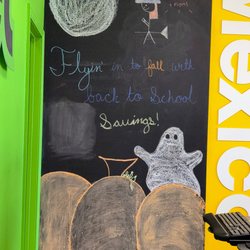 Flyin' in to fall with
back to School
Savings!
Mexico